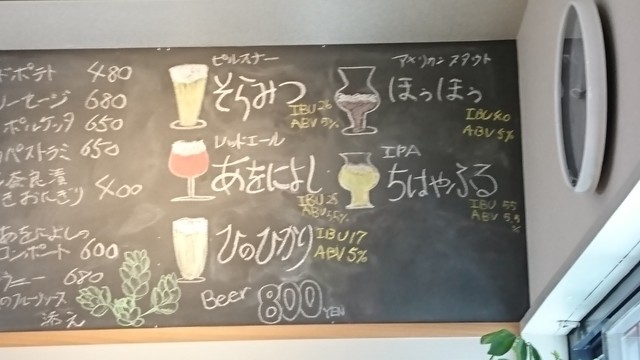 ドポテト 480
ソーセージ 680
ポルケッタ 650
パストラミ 650
奈良漬
きおにぎり 400
あをによしの
コンポート 600
ウニー 680
のフルーツソース
添え
ピルスナー
そらみつ
IBU 26
ABV 5%
レッドエール
あをによし
IBU 25
ABV 5.5%
ひのひかり
IBU 17
ABV 5%
アメリカン スタウト
ほうほう
IBU 40
ABV 5%
IPA
ちはやふる
IBU 55
ABV 5.5
%
Beer 800 YEN